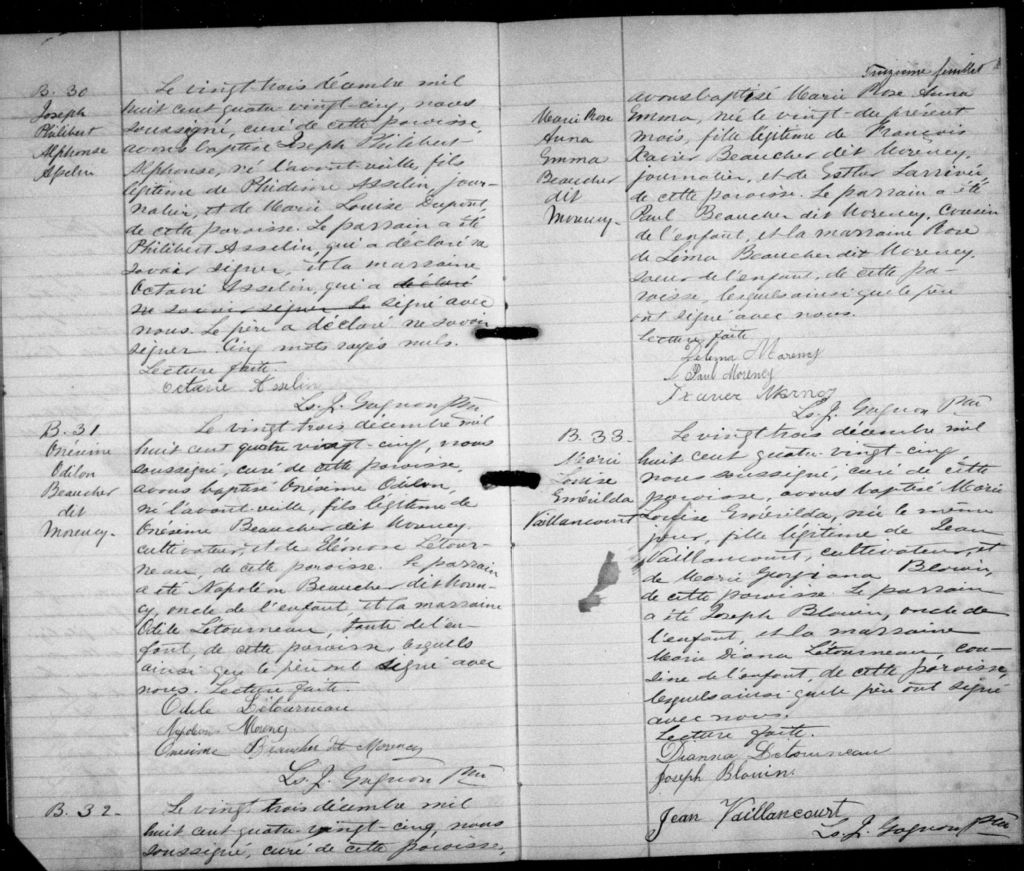 B. 30
Joseph
Philibert
Alphonse
Asselin
Le vingt trois décembre mil
huit cent quatre vingt-cinq, nous
soussigné, curé de cette paroisse,
avons baptisé Joseph Philibert
Alphonse, né l'avant-veille, fils
légitime de Phidime Asselin, jour-
nalier, et de Marie Louise Dupont,
de cette paroisse. Le parrain a été
Philibert Asselin, qui a déclaré ne
savoir signer, et la marraine
Octavie Asselin, qui a déclaré
ne savoir signer le signé avec
nous. Le père a déclaré ne savoir
signer. Cinq mots rayés nuls.
Lecture faite.
Octavie Asselin
Ls. J. Gagnon Ptre
B. 31
Onésime
Odilon
Beaucher
dit
Morency.
Le vingt trois décembre mil
huit cent quatre vingt-cinq, nous
soussigné, curé de cette paroisse,
avons baptisé Onésime Odilon,
né l'avant-veille, fils légitime de
Onésime Beaucher dit Morency,
cultivateur, et de Eléonore Létour-
neau, de cette paroisse. Le parrain
a été Napoléon Beaucher dit Moren-
cy, oncle de l'enfant et la marraine
Odile Létourneau, tante de l'en-
fant, de cette paroisse, lesquels
ainsi que le père ont signé avec
nous. Lecture faite.
Odile Létourneau
Napoléon Morency
Onesime Beaucher dit Morency
Ls. J. Gagnon Ptre
B. 32
Le vingt trois décembre mil
huit cent quatre vingt-cinq, nous
soussigné, curé de cette paroisse,
feuillet
Marie Rose
Anna
Emma
Beaucher
dit
Morency.
avons baptisé Marie Rose Anna
Emma, née le vingt du présent
mois, fille légitime de François
Xavier Beaucher dit Morency,
journalier, et de Esther Larrivée,
de cette paroisse. Le parrain a été
Paul Beaucher dit Morency, cousin
de l'enfant, et la marraine Rose
de Lima Beaucher dit Morency,
soeur de l'enfant, de cette pa-
roisse, lesquels ainsi que le père
ont signé avec nous.
Lecture faite
Morency
Paul Morency
Ls. J. Gagnon Ptre
B. 33.
Marie
Louise
Emérilda
Vaillancourt
Le vingt trois décembre mil
huit cent quatre-vingt-cinq,
nous soussigné, curé de cette
paroisse, avons baptisé Marie
Louise Emérilda, née le même
jour, fille légitime de Jean
Vaillancourt, cultivateur, et
de Marie Georgiana Blouin,
de cette paroisse. Le parrain
a été Joseph Blouin, oncle de
l'enfant, et la marraine
Marie Diana Létourneau, cou-
sine de l'enfant, de cette paroisse,
lesquels ainsi que le père ont signé
avec nous.
Lecture faite.
Dianna Letourneau
Joseph Blouin
Jean Vaillancourt
Ls. J. Gagnon Ptre